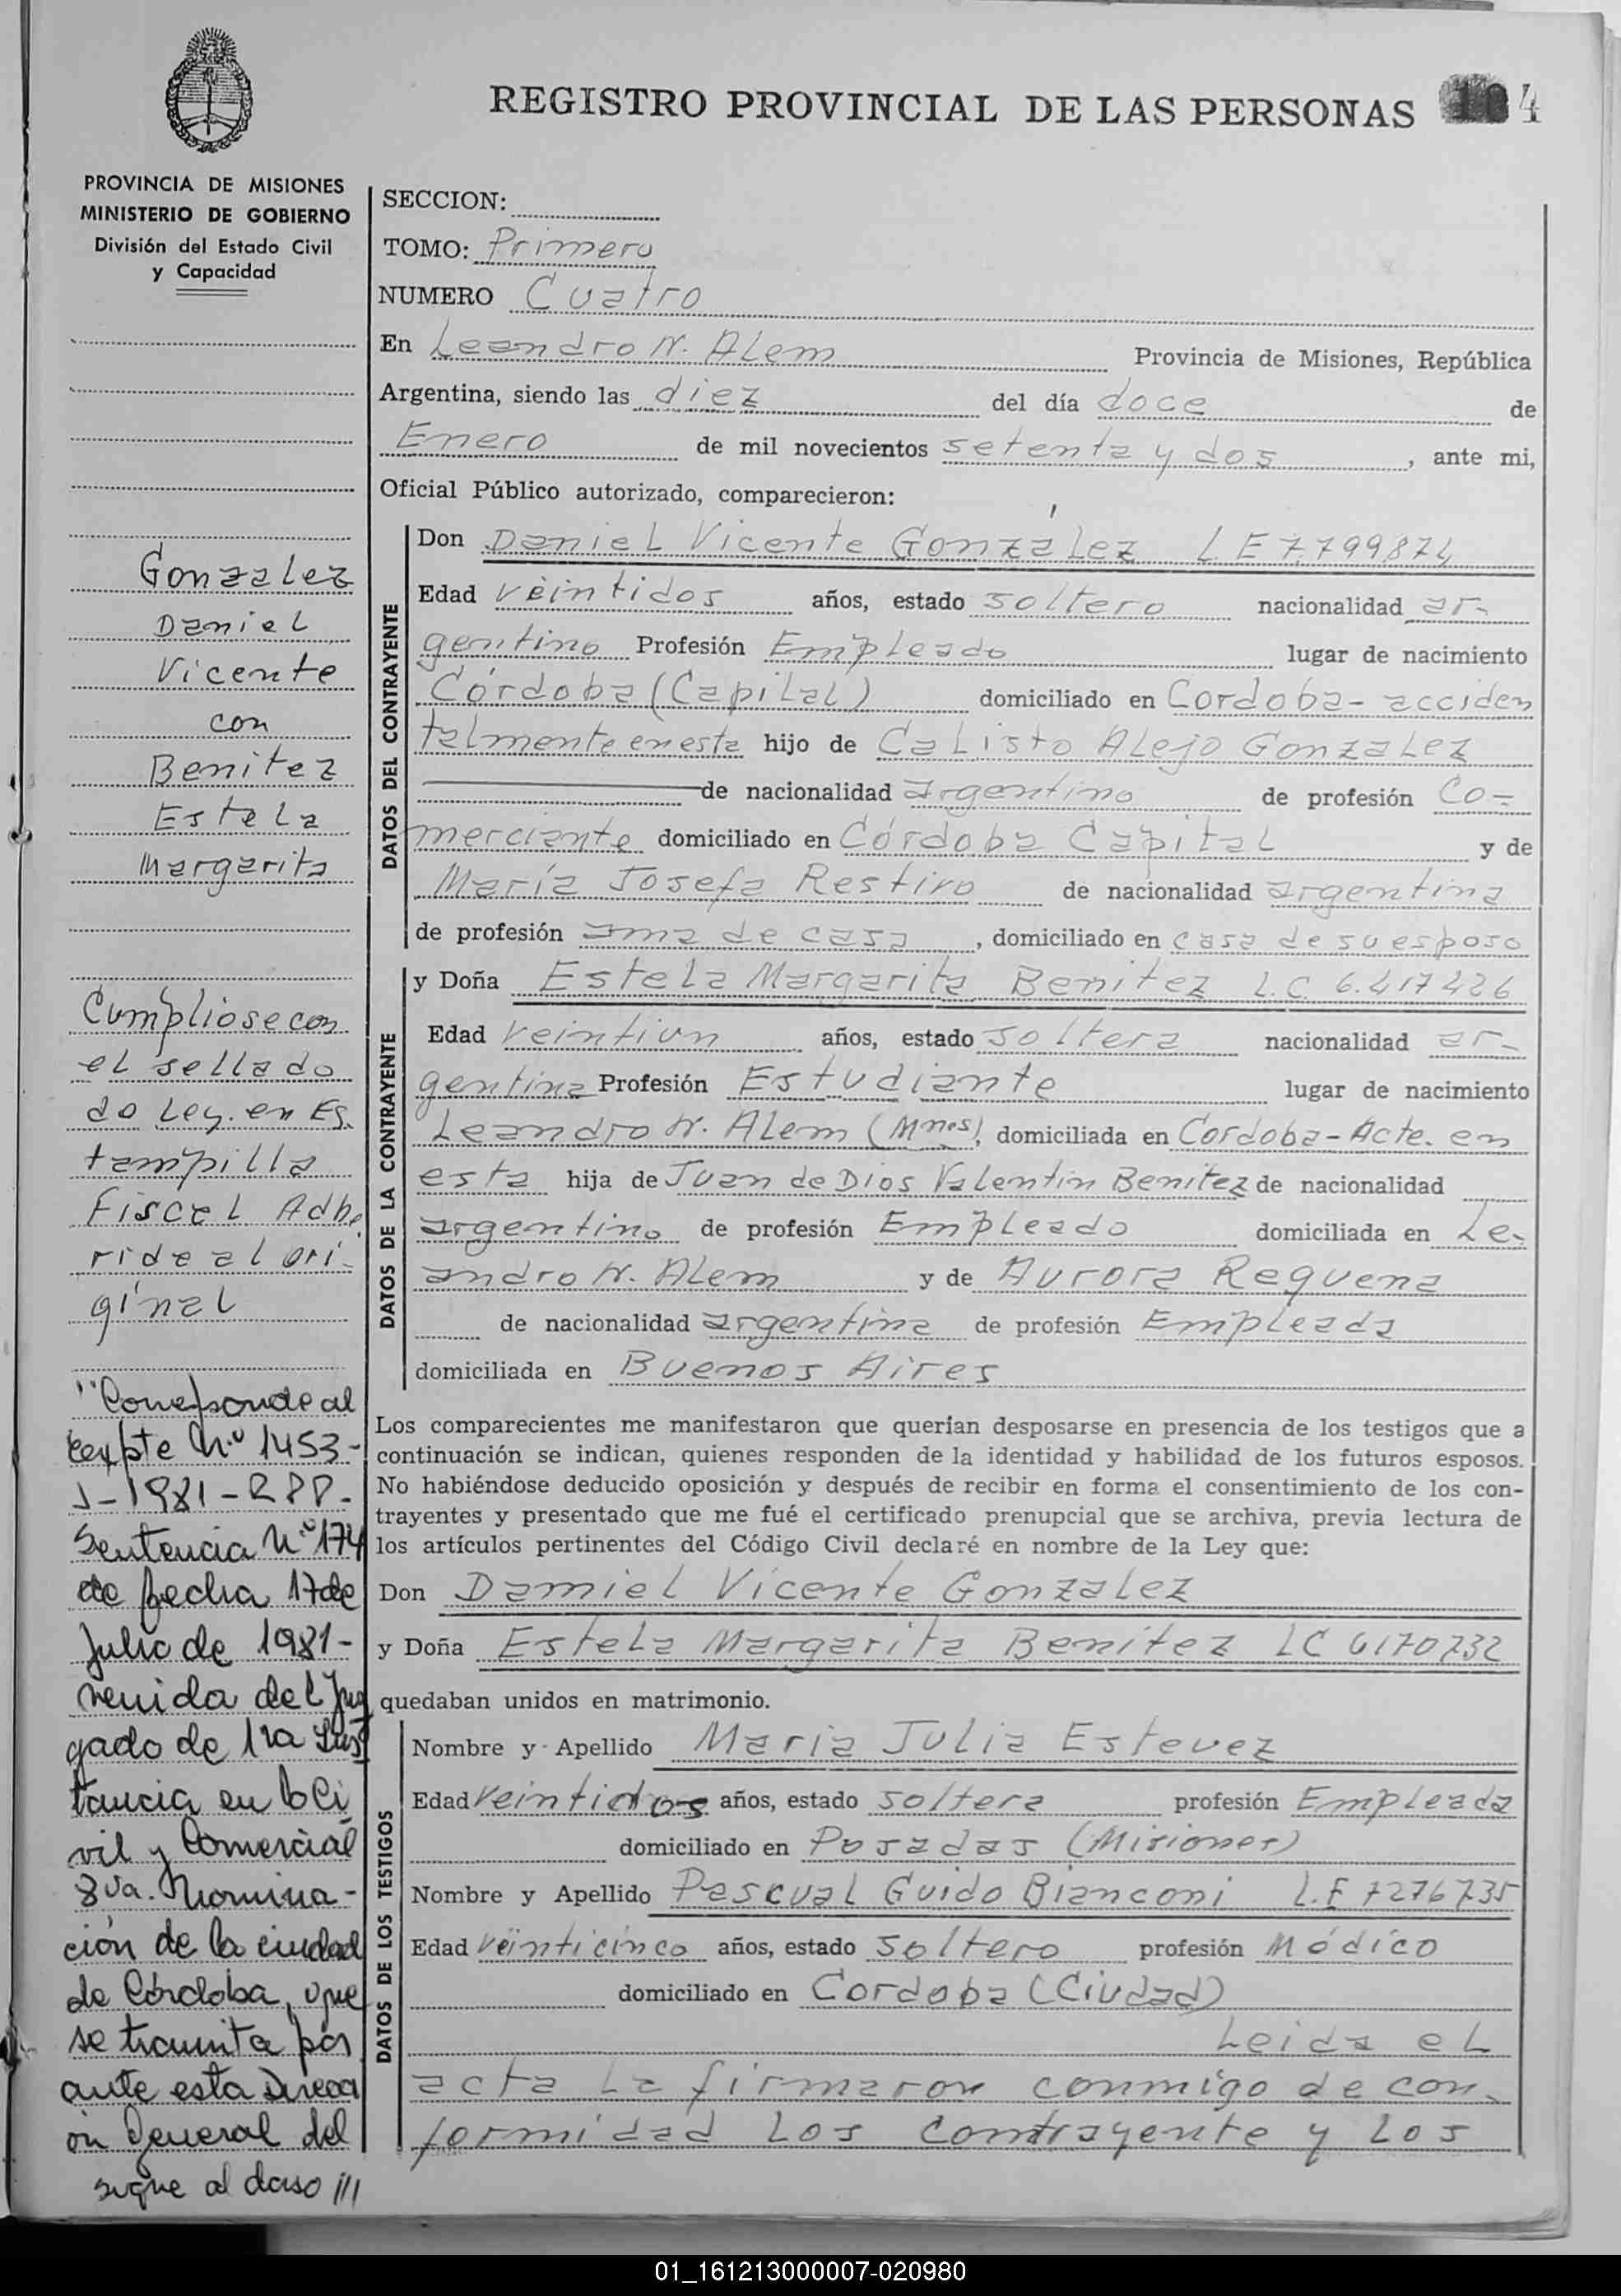 REGISTRO PROVINCIAL DE LAS PERSONAS 4
PROVINCIA DE MISIONES
MINISTERIO DE GOBIERNO
División del Estado Civil
y Capacidad
Gonzalez
Daniel
Vicente
con
Benitez
Estela
Margarita
Cumpliose con
el sellado
do Ley. en Es.
tampilla
Fiscal Adhe
ride al ori-
ginal
"Corresponde al
expte N.º 1453-
J-1981-RPP.
Sentencia Nº 174
de fecha 17 de
Julio de 1981-
venida del Juz
gado de 1ra Ins
tancia en lo Ci
vil y Comercial
8va. Nomina-
ción de la ciudad
de Córdoba, que
se tramita por
ante esta Direcci
ón General del
sigue al dorso ///
SECCION:
TOMO: Primero
NUMERO Cuatro
En Leandro N. Alem Provincia de Misiones, República
Argentina, siendo las diez del día doce de
Enero de mil novecientos setenta y dos, ante mi,
Oficial Público autorizado, comparecieron:
DATOS DEL CONTRAYENTE
Don Daniel Vicente González L.E 7.799.874
Edad veintidos años, estado soltero nacionalidad ar-
gentino Profesión Empleado lugar de nacimiento
Córdoba (Capital) domiciliado en Cordoba- acciden
talmente en esta hijo de Calisto Alejo Gonzalez
de nacionalidad argentino de profesión Co=
merciante domiciliado en Córdoba Capital y de
María Josefa Restivo de nacionalidad argentina
de profesión ama de casa, domiciliado en casa de su esposo
DATOS DE LA CONTRAYENTE
y Doña Estela Margarita Benitez L.C. 6.417426
Edad veintiun años, estado soltera nacionalidad ar-
gentina Profesión Estudiante lugar de nacimiento
Leandro N. Alem (Mnes), domiciliada en Cordoba-Acte. en
esta hija de Juan de Dios Valentin Benitez de nacionalidad
argentino de profesión Empleado domiciliada en Le-
andro N. Alem y de Aurora Requena
de nacionalidad argentina de profesión Empleada
domiciliada en Buenos Aires
Los comparecientes me manifestaron que querían desposarse en presencia de los testigos que a
continuación se indican, quienes responden de la identidad y habilidad de los futuros esposos.
No habiéndose deducido oposición y después de recibir en forma el consentimiento de los con-
trayentes y presentado que me fué el certificado prenupcial que se archiva, previa lectura de
los artículos pertinentes del Código Civil declaré en nombre de la Ley que:
Don Daniel Vicente Gonzalez
y Doña Estela Margarita Benitez LC 6170732
quedaban unidos en matrimonio.
DATOS DE LOS TESTIGOS
Nombre y Apellido Maria Julia Estevez
Edad veintidos años, estado soltera profesión Empleada
domiciliado en Posadas (Misiones)
Nombre y Apellido Pascual Guido Bianconi L.E 7276735
Edad veinticinco años, estado soltero profesión Módico
domiciliado en Cordoba (Ciudad)
Leida el
acta la firmaron conmigo de con-
formidad los contrayente y los
01_161213000007-020980